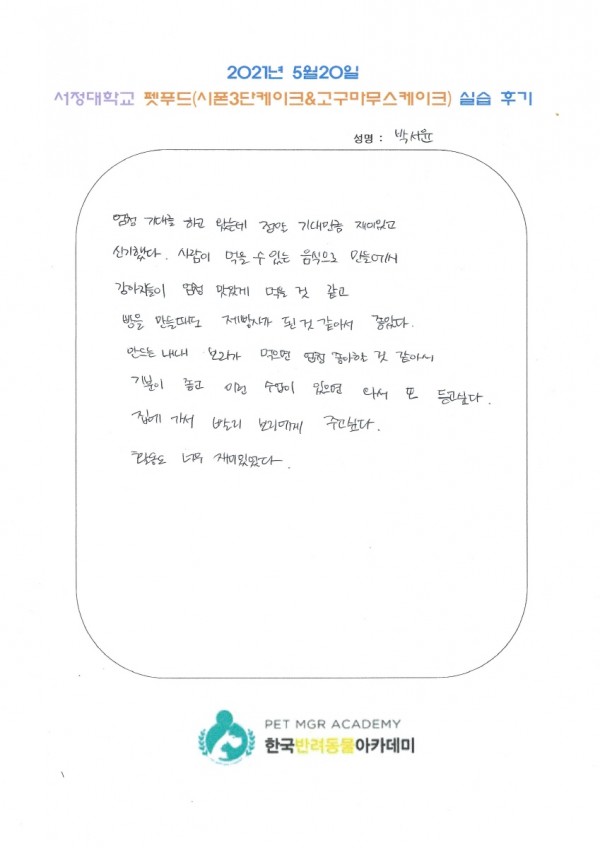 2021년 5월20일
서정대학교 펫푸드(시폰3단케이크&고구마무스케이크) 실습 후기
성명 : 박서윤
엄청 기대를 하고 왔는데 정말 기대만큼 재미있고
신기했다. 사람이 먹을 수 있는 음식으로 만들어서
강아지들이 엄청 맛있게 먹을 것 같고
빵을 만들때도 제빵사가 된 것 같아서 좋았다.
만드는 내내 보리가 먹으면 엄청 좋아할 것 같아서
기분이 좋고 이런 수업이 있으면 와서 또 듣고싶다.
집에 가서 빨리 보리에게 주고싶다.
너무 재미있었다
PET MGR ACADEMY
한국반려동물아카데미